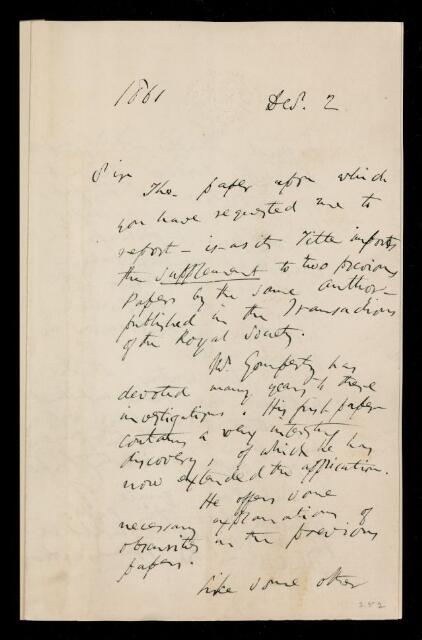 1861 Dec. 2
Sir
The paper upon which
you have requested me to
report - is - as its Title imports
the supplement to two previous
Papers by the same author -
published in the Transactions
of the Royal Society.
Mr. Gompertz has
devoted many years to these
investigations. His first paper
contains a very interesting
discovery, of which he has
now extended the application.
He offers some
necessary explanations of
obscurities in the previous
papers.
Like some other
252